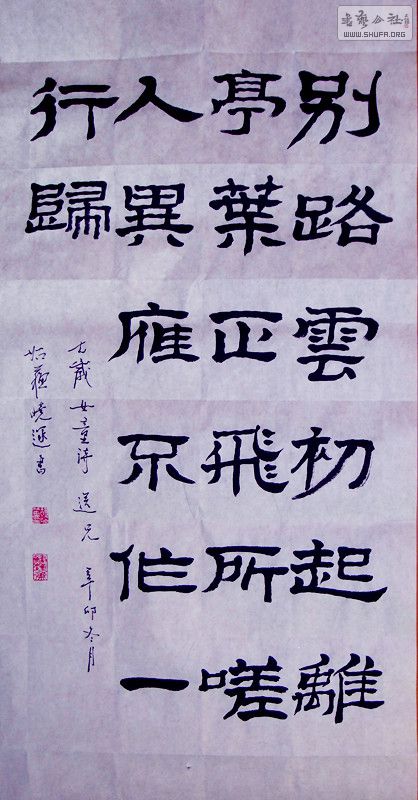 書藝公社
WWW.SHUFA.ORG
别路雲初起離
亭葉正飛所嗟
人異雁不作一
行歸
七歲女童詩 送兄 辛卯冬月
姑蘇曉書